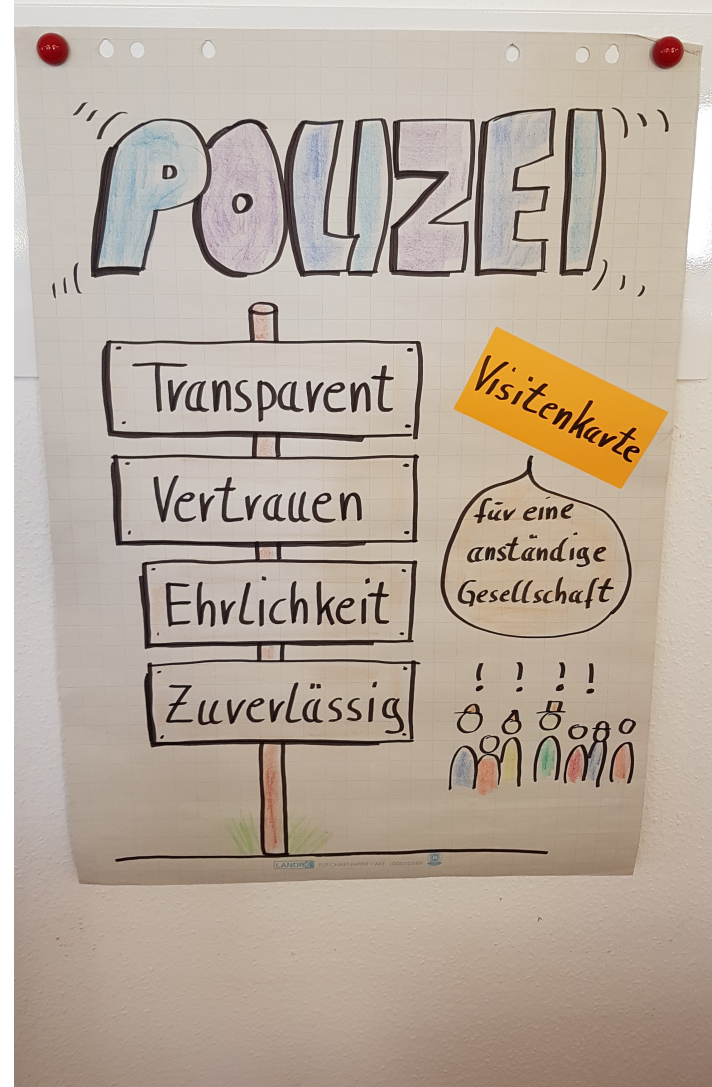 POLIZEI
Transparent
Vertrauen
Ehrlichkeit
Zuverlässig
Visitenkarte
für eine
anständige
Gesellschaft
! ! ! !
LANDRÉ